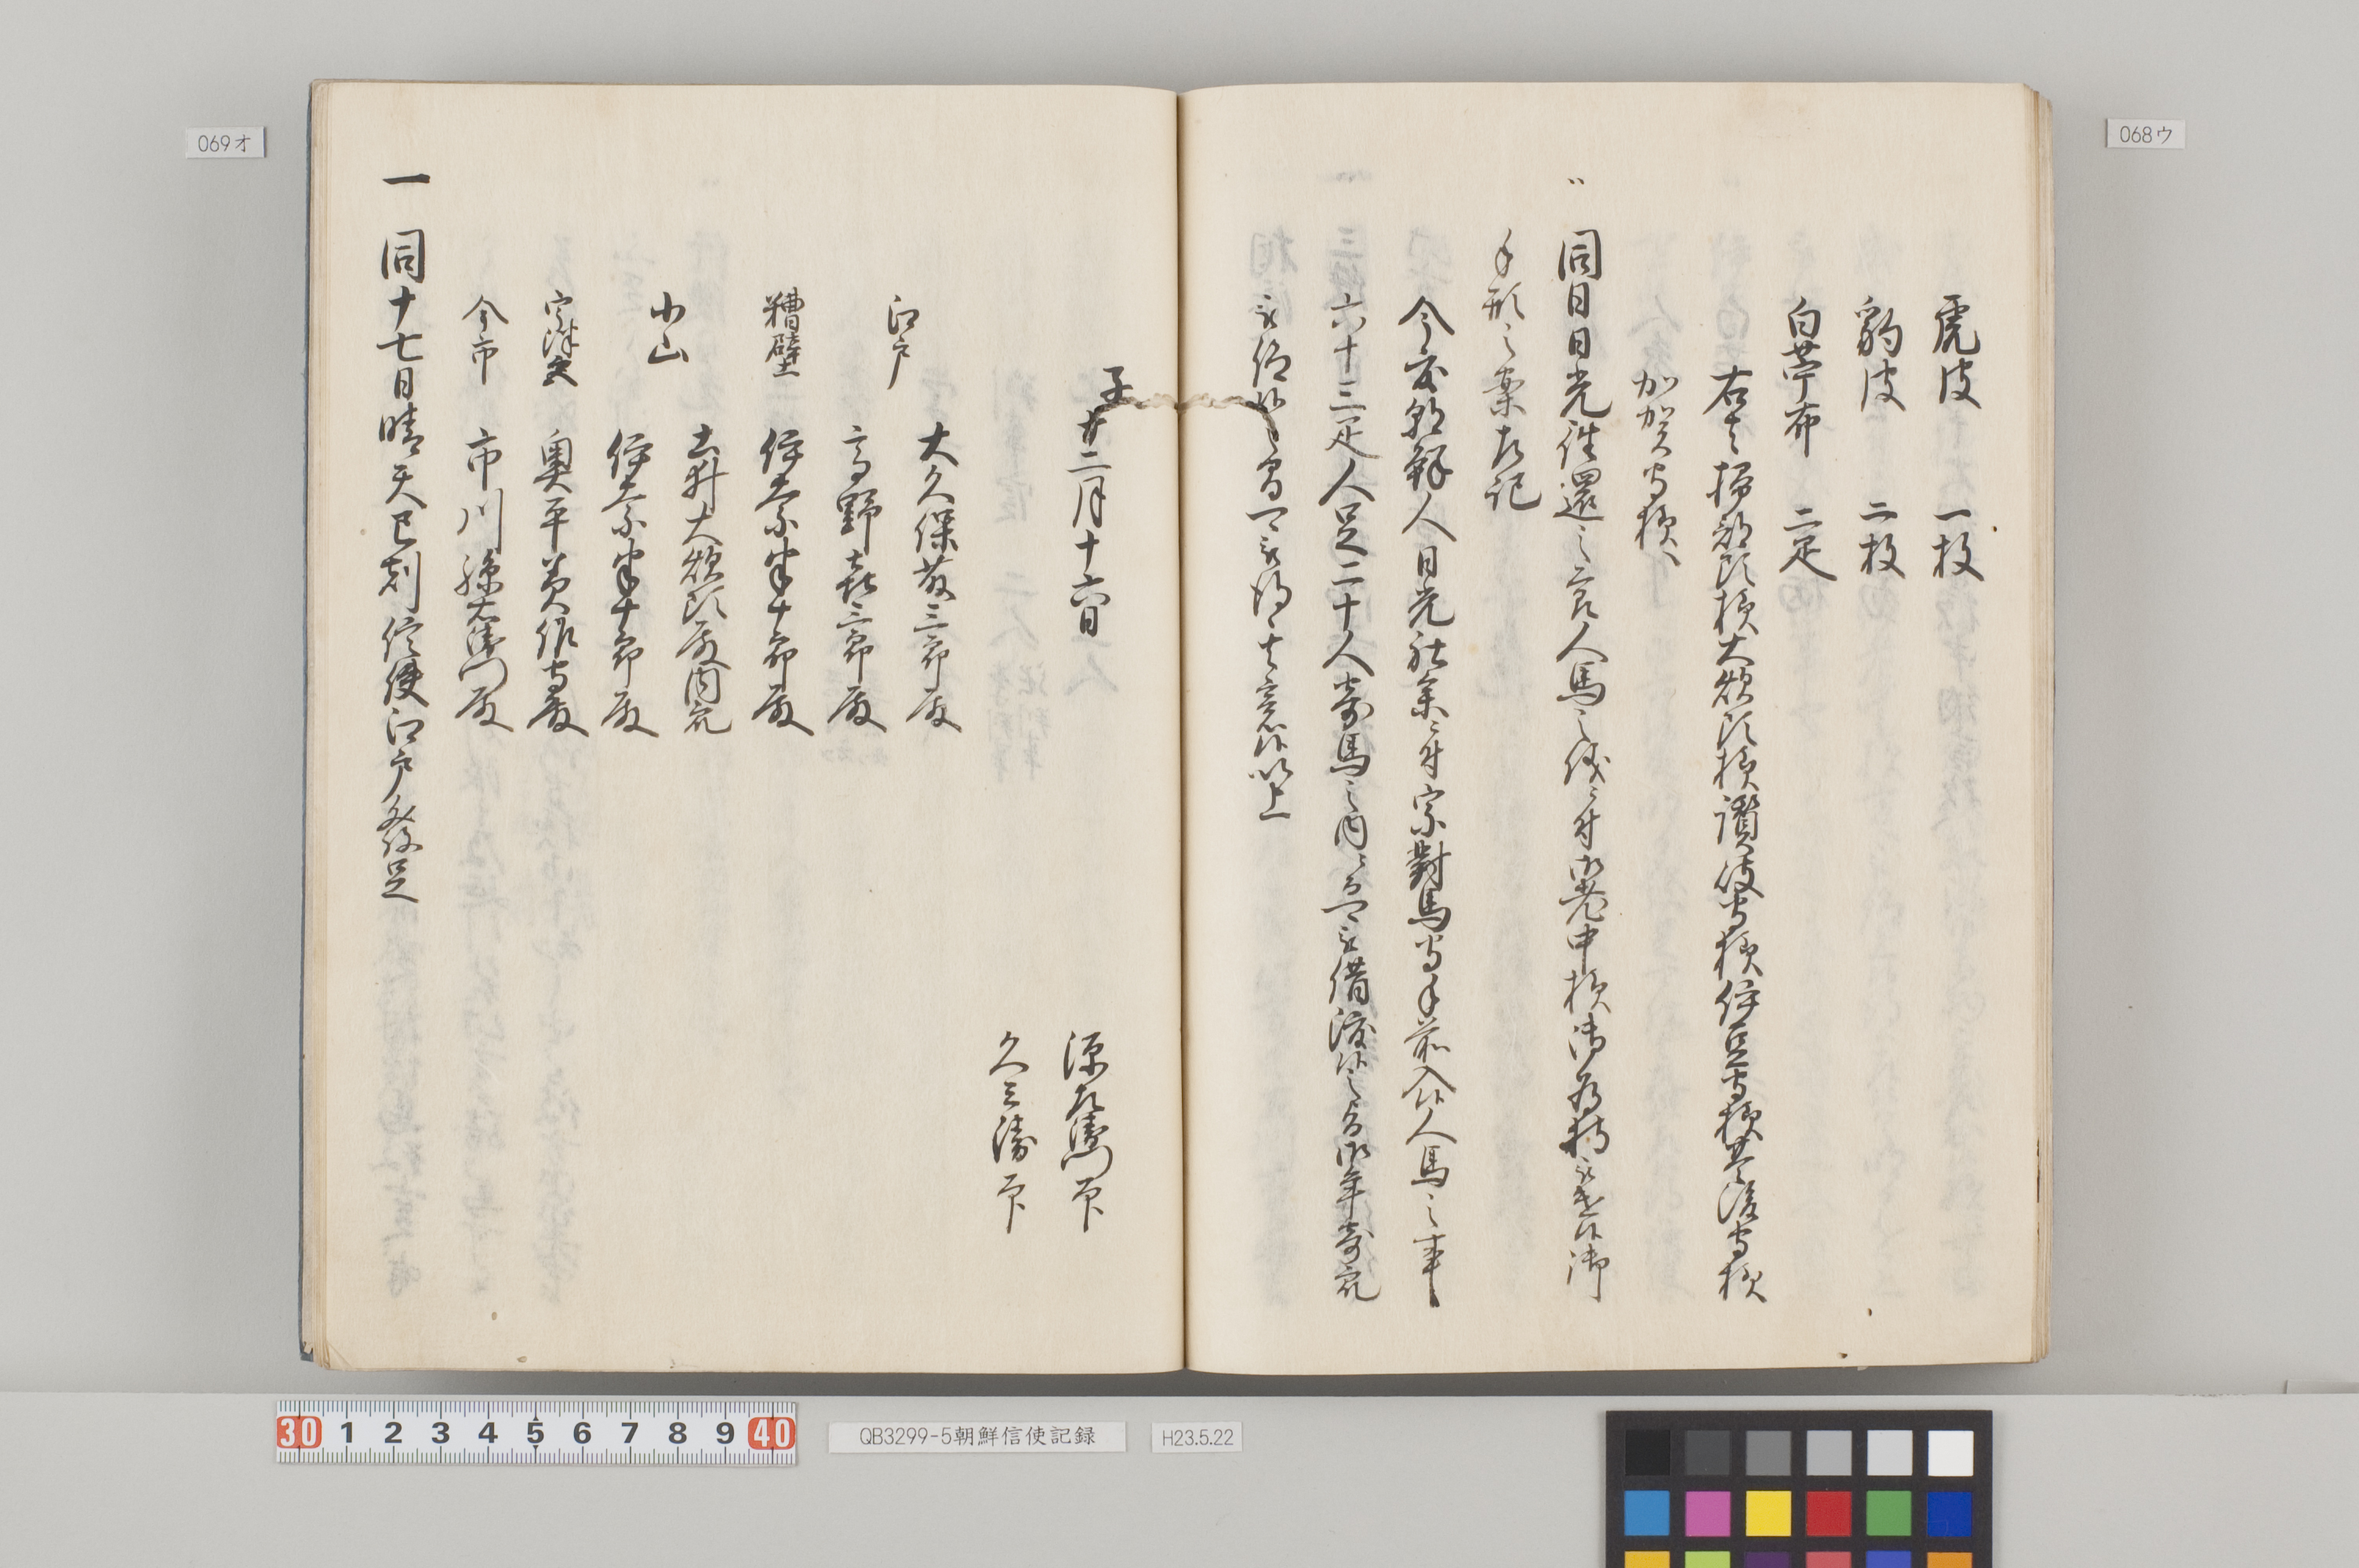 虎皮　一枚
豹皮　二枚
白苧布　二疋
右ハ掃部頭様大炊頭様讃岐守様伊豆守様豊後守様
加賀守様へ
〃 同日日光往還之荷人馬之儀ニ付御老中様御
手形之案左記
今度朝鮮人日光社参ニ付宗對馬守手前入候人馬之事
六十三疋人足二十人寄馬之内
借渡候
以上
子十二月十六日
源左衛門印
久三郎印
江戸
大久保藤三郎殿
高野喜三郎殿
糟壁
伊奈半十郎殿
小山
土井大炊頭殿内衆
伊奈半十郎殿
宇津宮
奥平美作守殿
今市
市川孫右衛門殿
一 同十七日晴天巳刻信使江戸發足
069オ
068ウ
30 1 2 3 4 5 6 7 8 9 40
QB3299-5朝鮮信使記録
H23.5.22